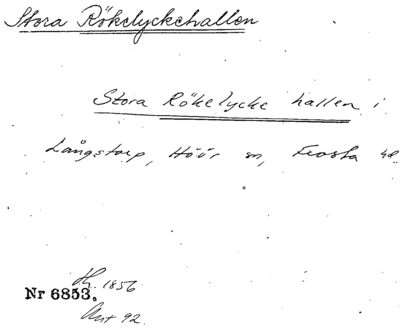 Stora Rökelyckehallen
Stora Rökelycke hallen i
Långstorp, Höör sn, Frosta hd.
Hg. 1856
Nr 6853.
Ant 92.